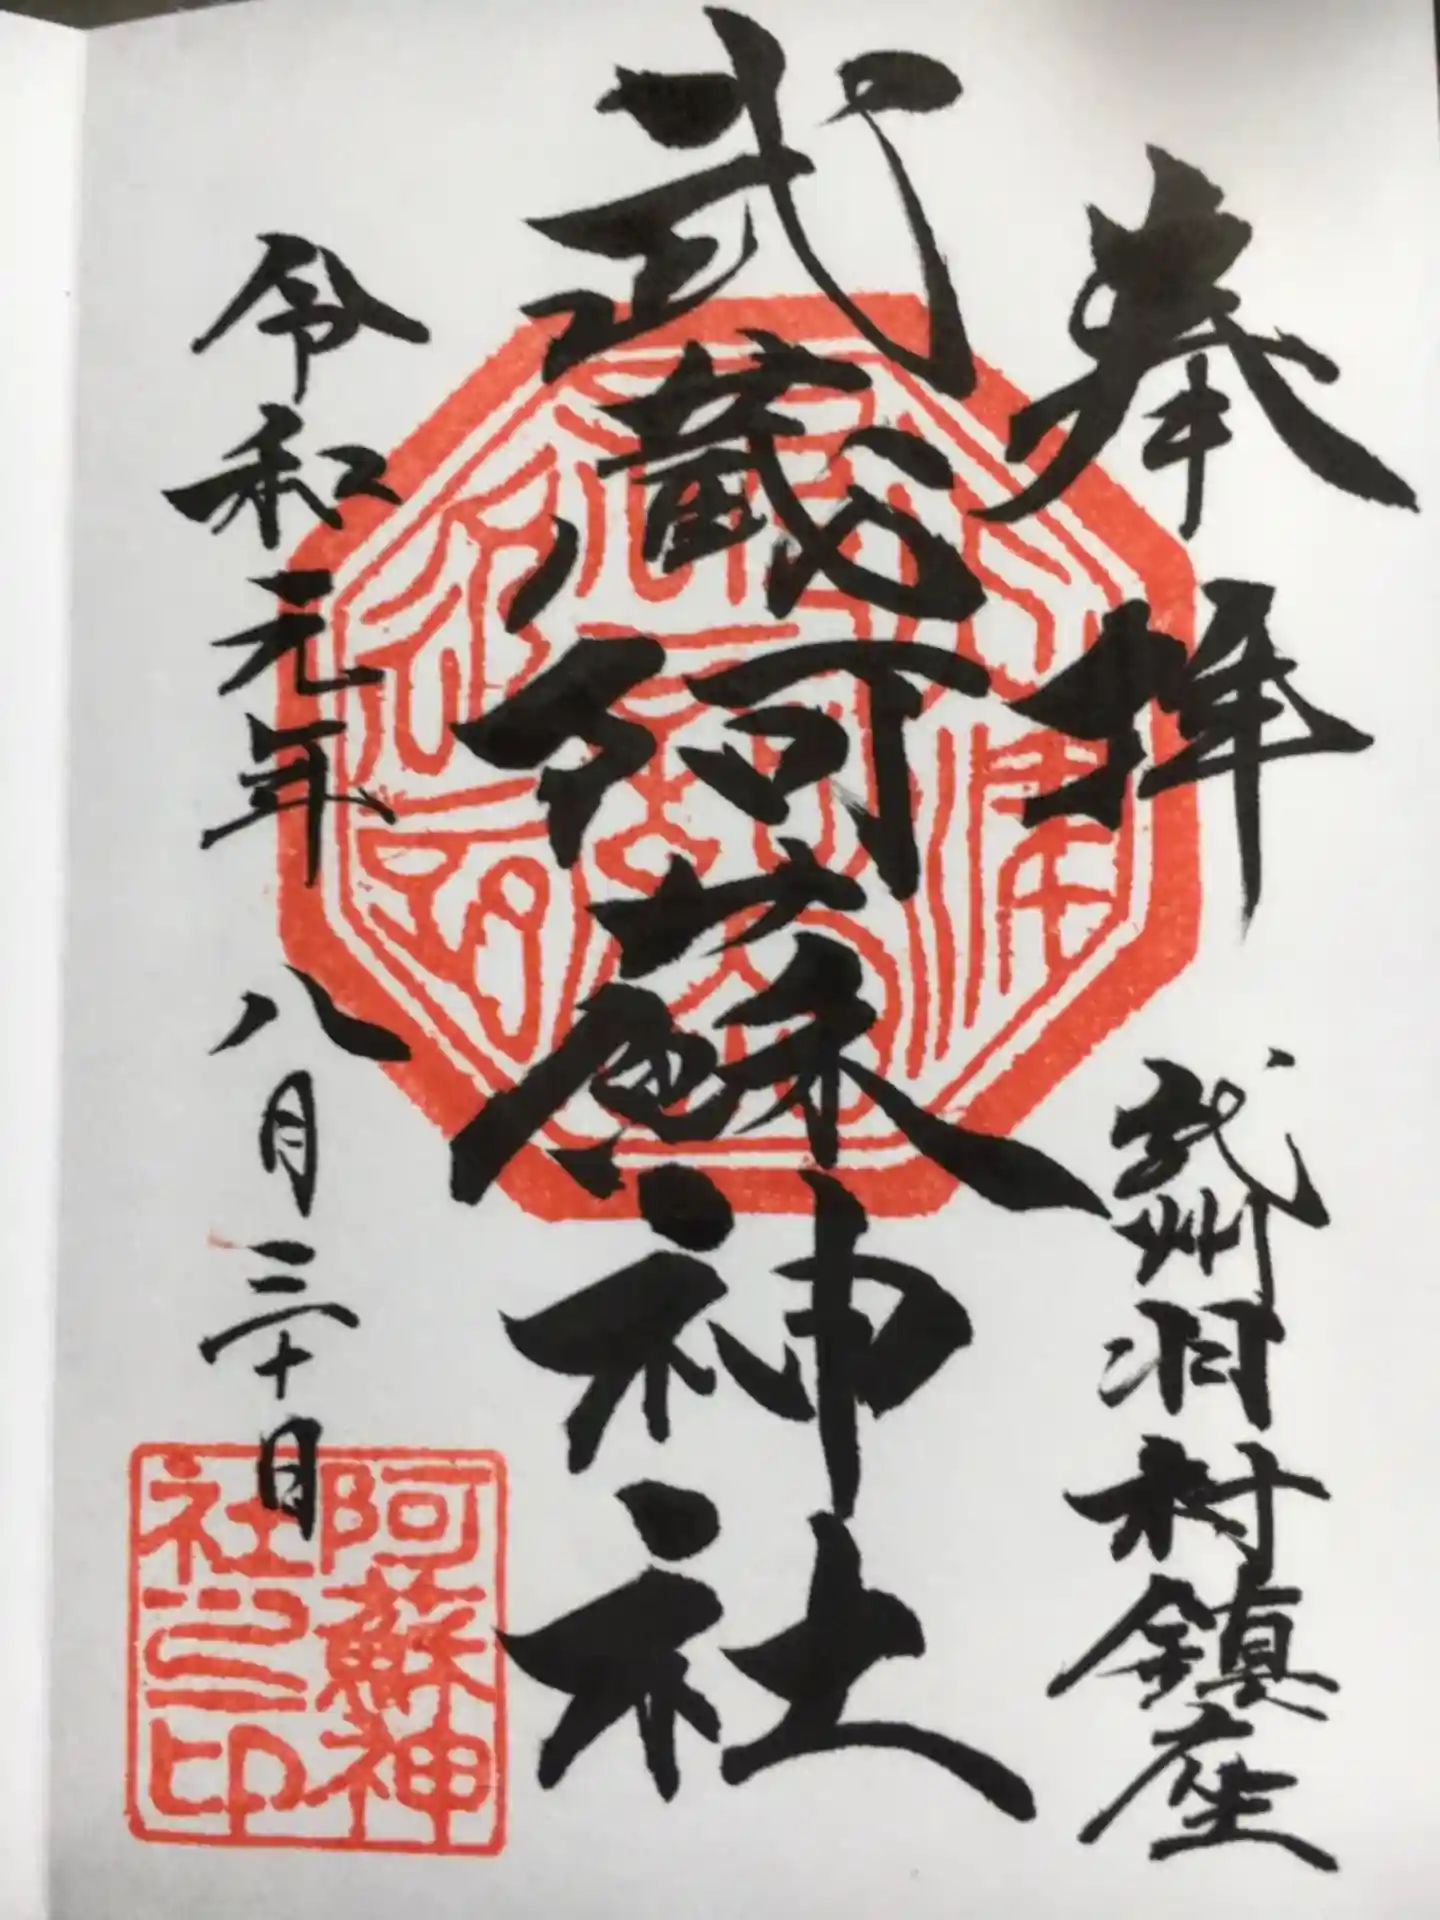 奉拝
武州羽村鎮座
武蔵阿蘇神社
令和元年八月三十日
阿蘇神
社之印